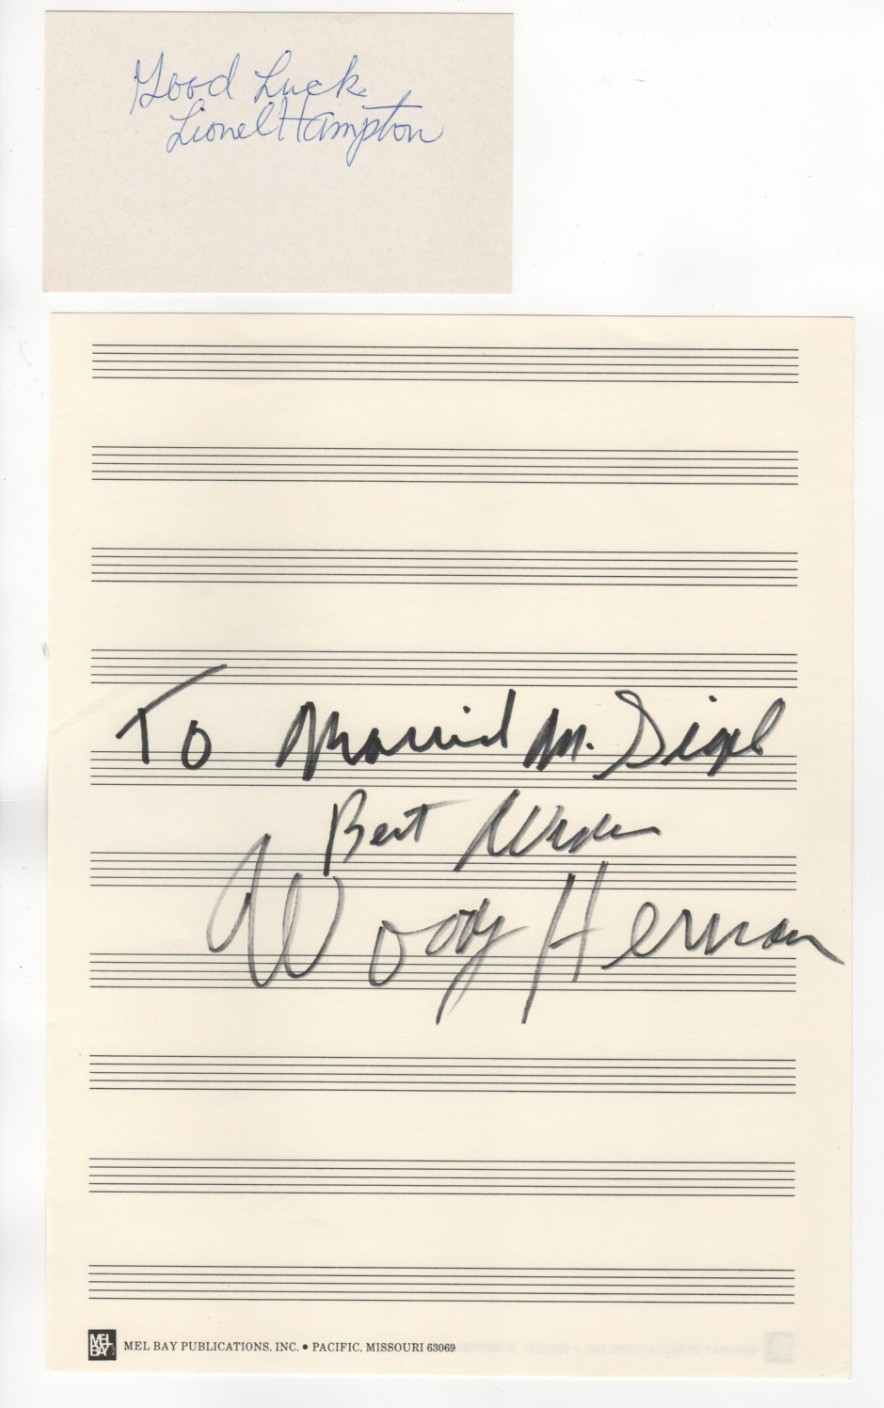 Good Luck
Lionel Hampton
To M. Sigel
Best Wishes
Woody Herman
MEL BAY
MEL BAY PUBLICATIONS, INC. • PACIFIC, MISSOURI 63069